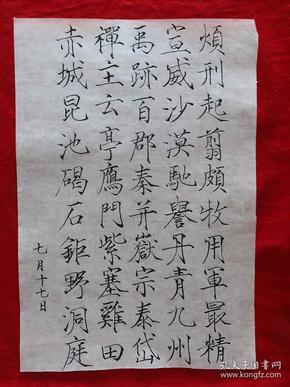 煩刑起翦頗牧用軍最精
宣威沙漠馳譽丹青九州
禹跡百郡秦并嶽宗泰岱
禪主云亭鴈門紫塞雞田
赤城昆池碣石鉅野洞庭
七月十七日
孔夫子旧书网